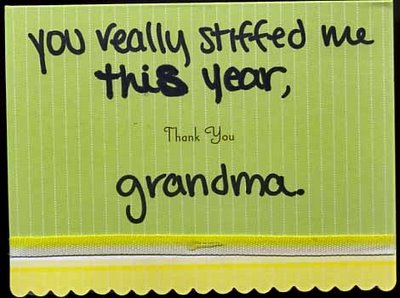 you really stiffed me
this year,
Thank You
grandma.